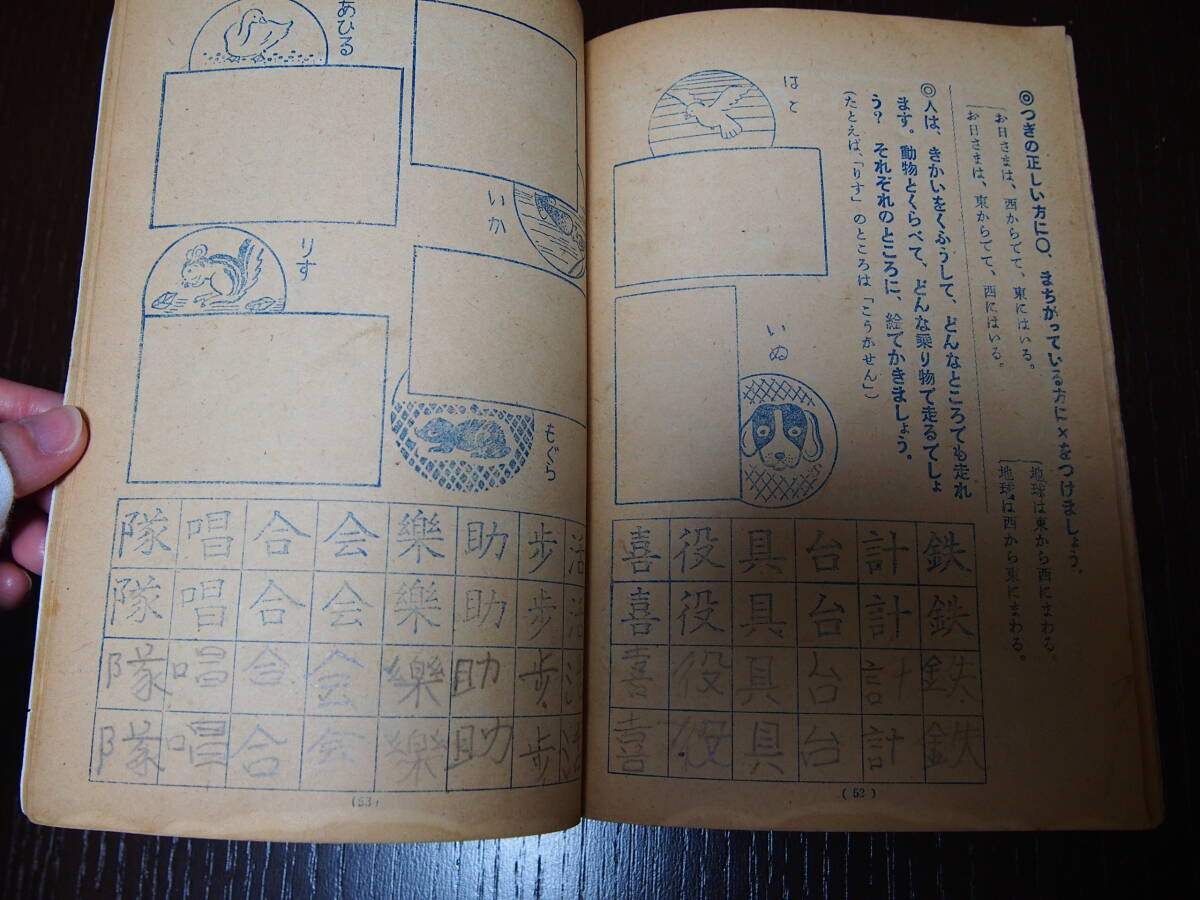 ◎つぎの正しい方に〇、まちがっている方に×をつけましょう。
お日さまは、西からでて、東にはいる。
お日さまは、東からでて、西にはいる。
地球は東から西にまわる。
地球は西から東にまわる。
◎人は、きかいをくふうして、どんなところでも走れ
ます。動物とくらべて、どんな乗り物で走るでしょ
う？ それぞれのところに、絵でかきましょう。
(たとえば、「りす」のところは「こうかせん」)
はと
いぬ
鉄計台具役喜
鉄計台具役喜
鉄計台具役喜
鉄計台具役喜
(52)
いか
もぐら
あひる
りす
活歩助樂会合唱隊
活歩助樂会合唱隊
活歩助樂会合唱隊
活歩助樂会合唱隊
(53)